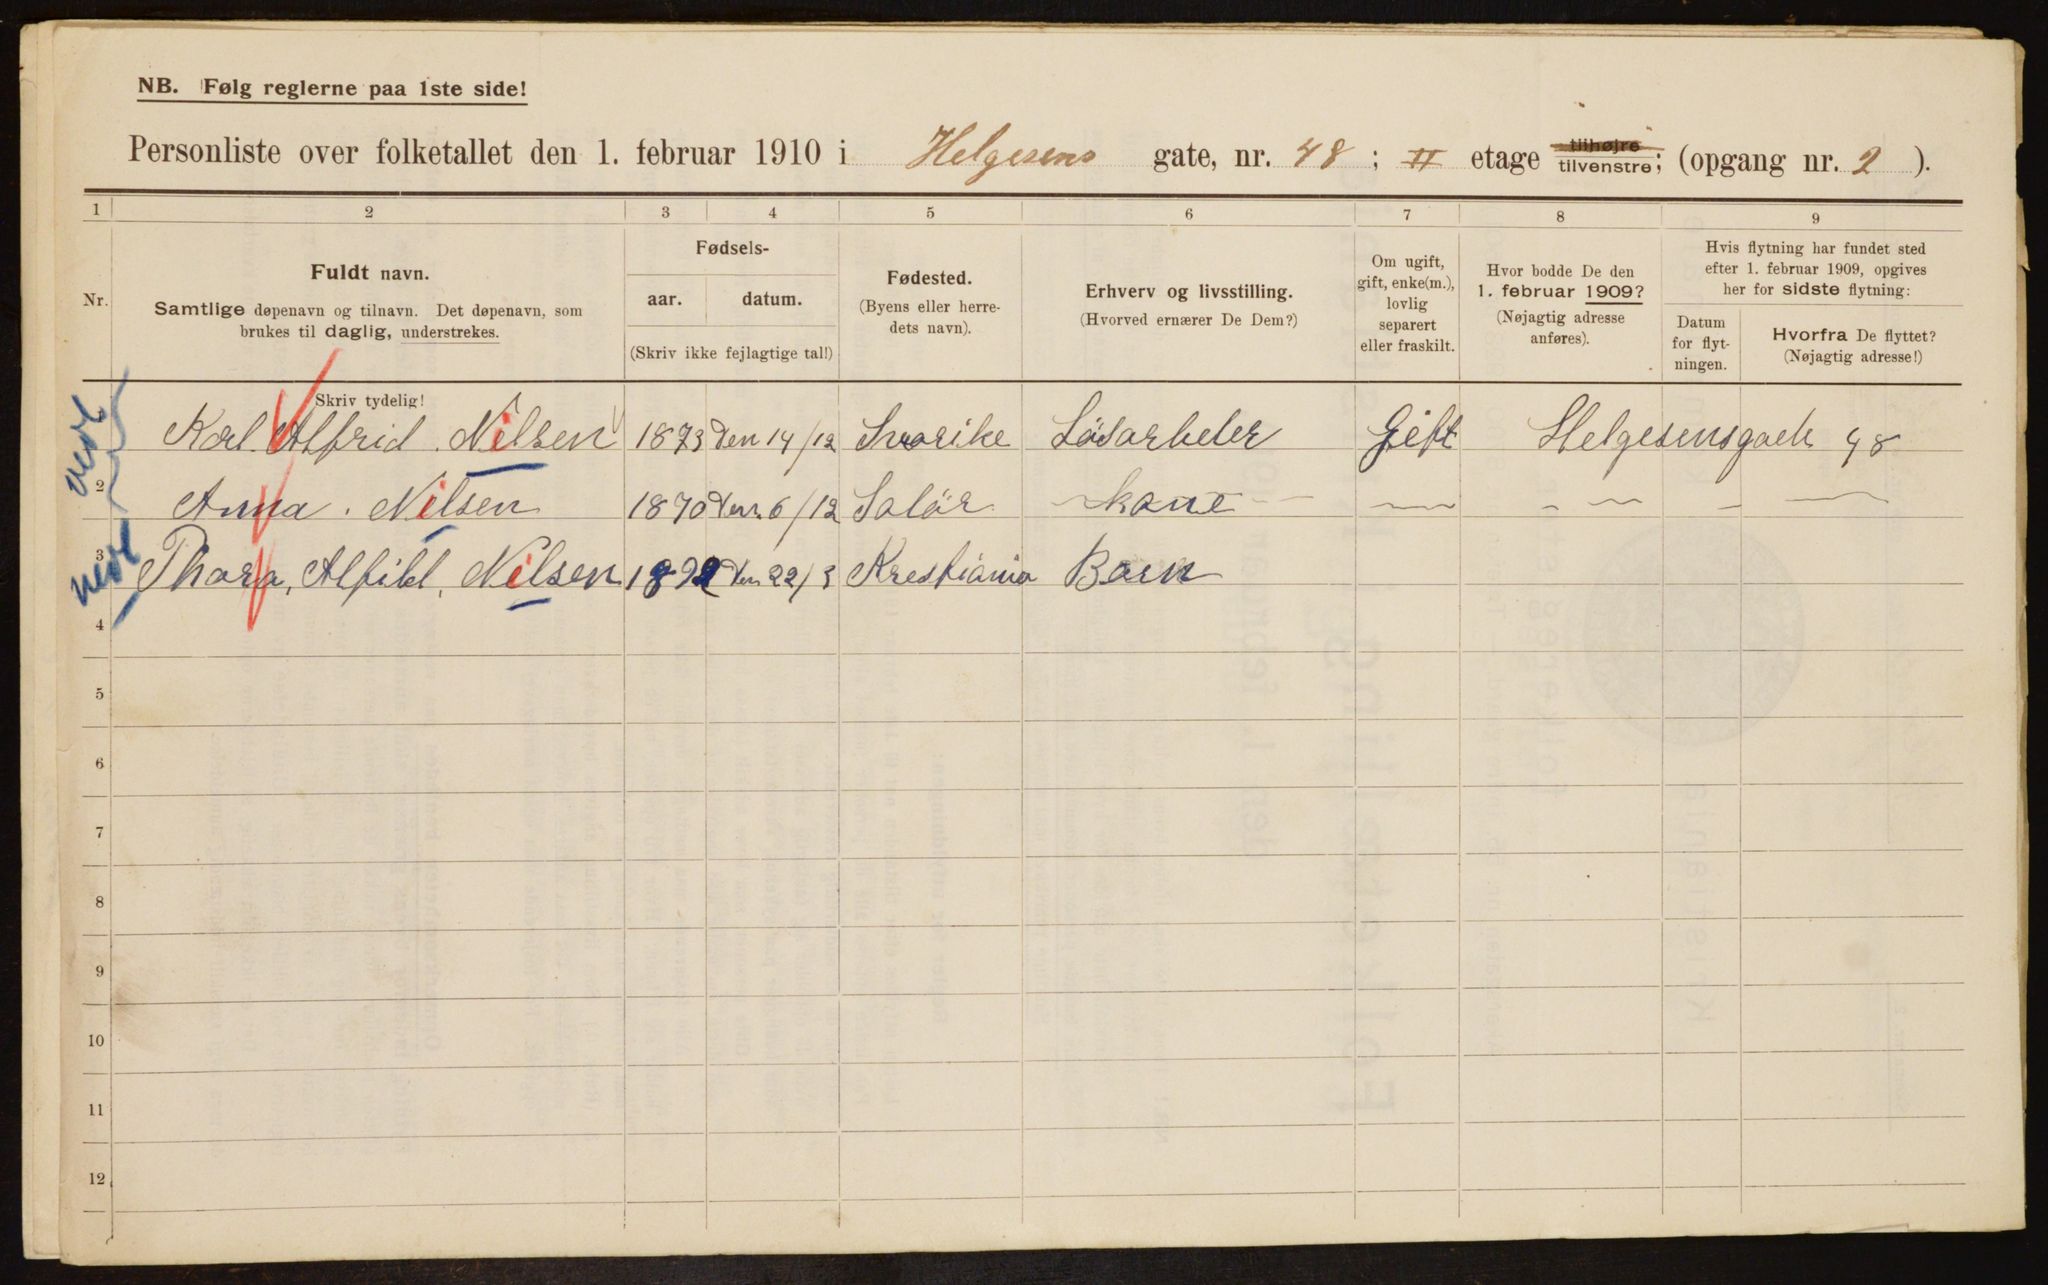 NB. Følg reglerne paa 1ste side!
Personliste over folketallet den 1. februar 1910 i Helgesens gate, nr. 48 ; II etage tilhøjre tilvenstre; (opgang nr. 2 ).
1 2 3 4 5 6 7 8 9
Nr.
Fuldt navn.
Samtlige døpenavn og tilnavn. Det døpenavn, som
brukes til daglig, understrekes.
Fødsels-
aar. datum.
(Skriv ikke fejlagtige tal!)
Fødested.
(Byens eller herre-
dets navn).
Erhverv og livsstilling.
(Hvorved ernærer De Dem?)
Om ugift,
gift, enke(m.),
lovlig
separert
eller fraskilt.
Hvor bodde De den
1. februar 1909?
(Nøjagtig adresse
anføres).
Hvis flytning har fundet sted
efter 1. februar 1909, opgives
her for sidste flytning:
Datum
for flyt-
ningen.
Hvorfra De flyttet?
(Nøjagtig adresse!)
Skriv tydelig!
Karl. Alfrid. Nilsen 1873 den 14/12 Løsarbeier Gift Helgesensgade 48
2 Anna. Nilsen 1870 den 6/12 Solør kone
3 Thora, Alfild, Nilsen 1892 den 22/3 Krestiania Barn
4
5
6
7
8
9
10
11
12